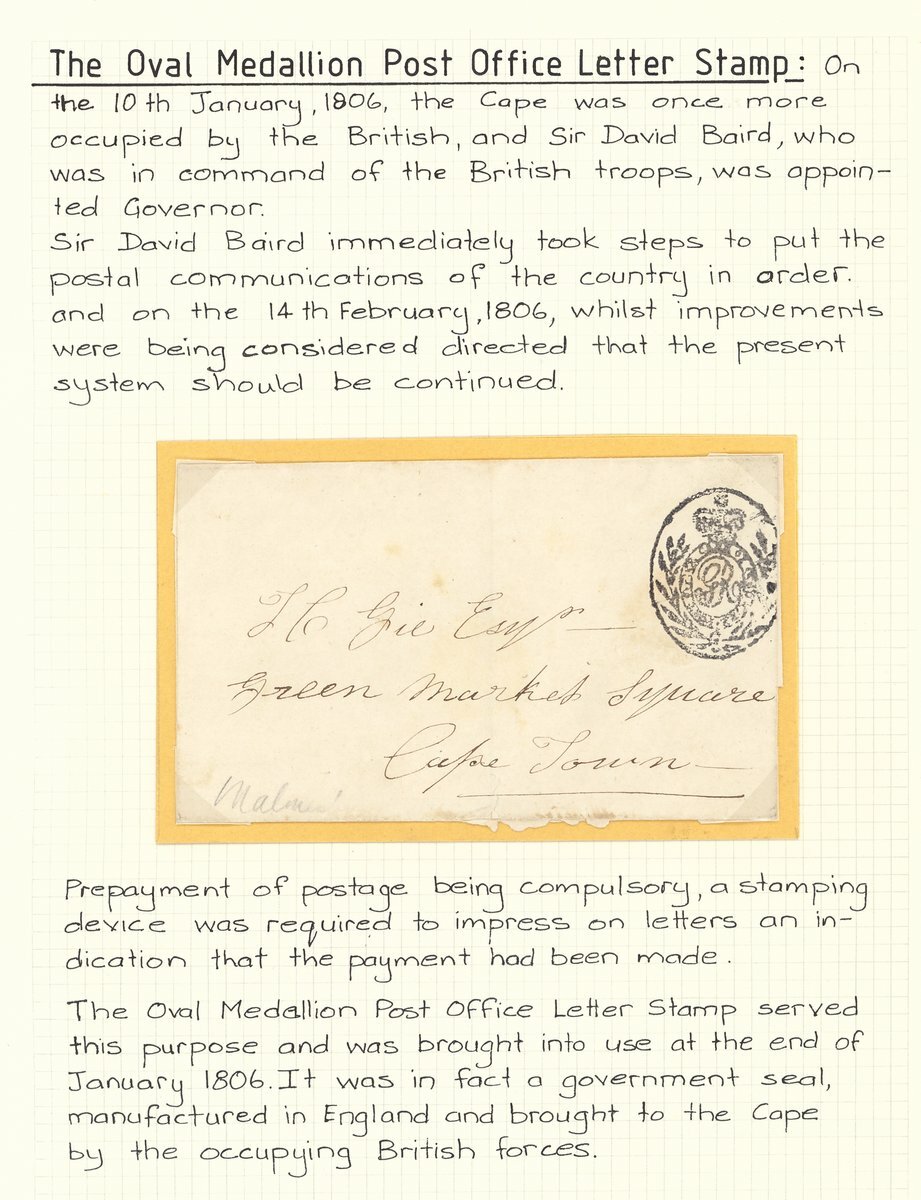 The Oval Medallion Post Office Letter Stamp: On
the 10th January, 1806, the Cape was once more
occupied by the British, and Sir David Baird, who
was in command of the British troops, was appoin-
ted Governor.
Sir David Baird immediately took steps to put the
postal communications of the country in order.
and on the 14th February, 1806, whilst improvements
were being considered directed that the present
system should be continued.
GR
Gie Esqr
Green Market Square
Cape Town
Prepayment of postage being compulsory, a stamping
device was required to impress on letters an in-
dication that the payment had been made.
The Oval Medallion Post Office Letter Stamp served
this purpose and was brought into use at the end of
January 1806. It was in fact a government seal,
manufactured in England and brought to the Cape
by the occupying British forces.